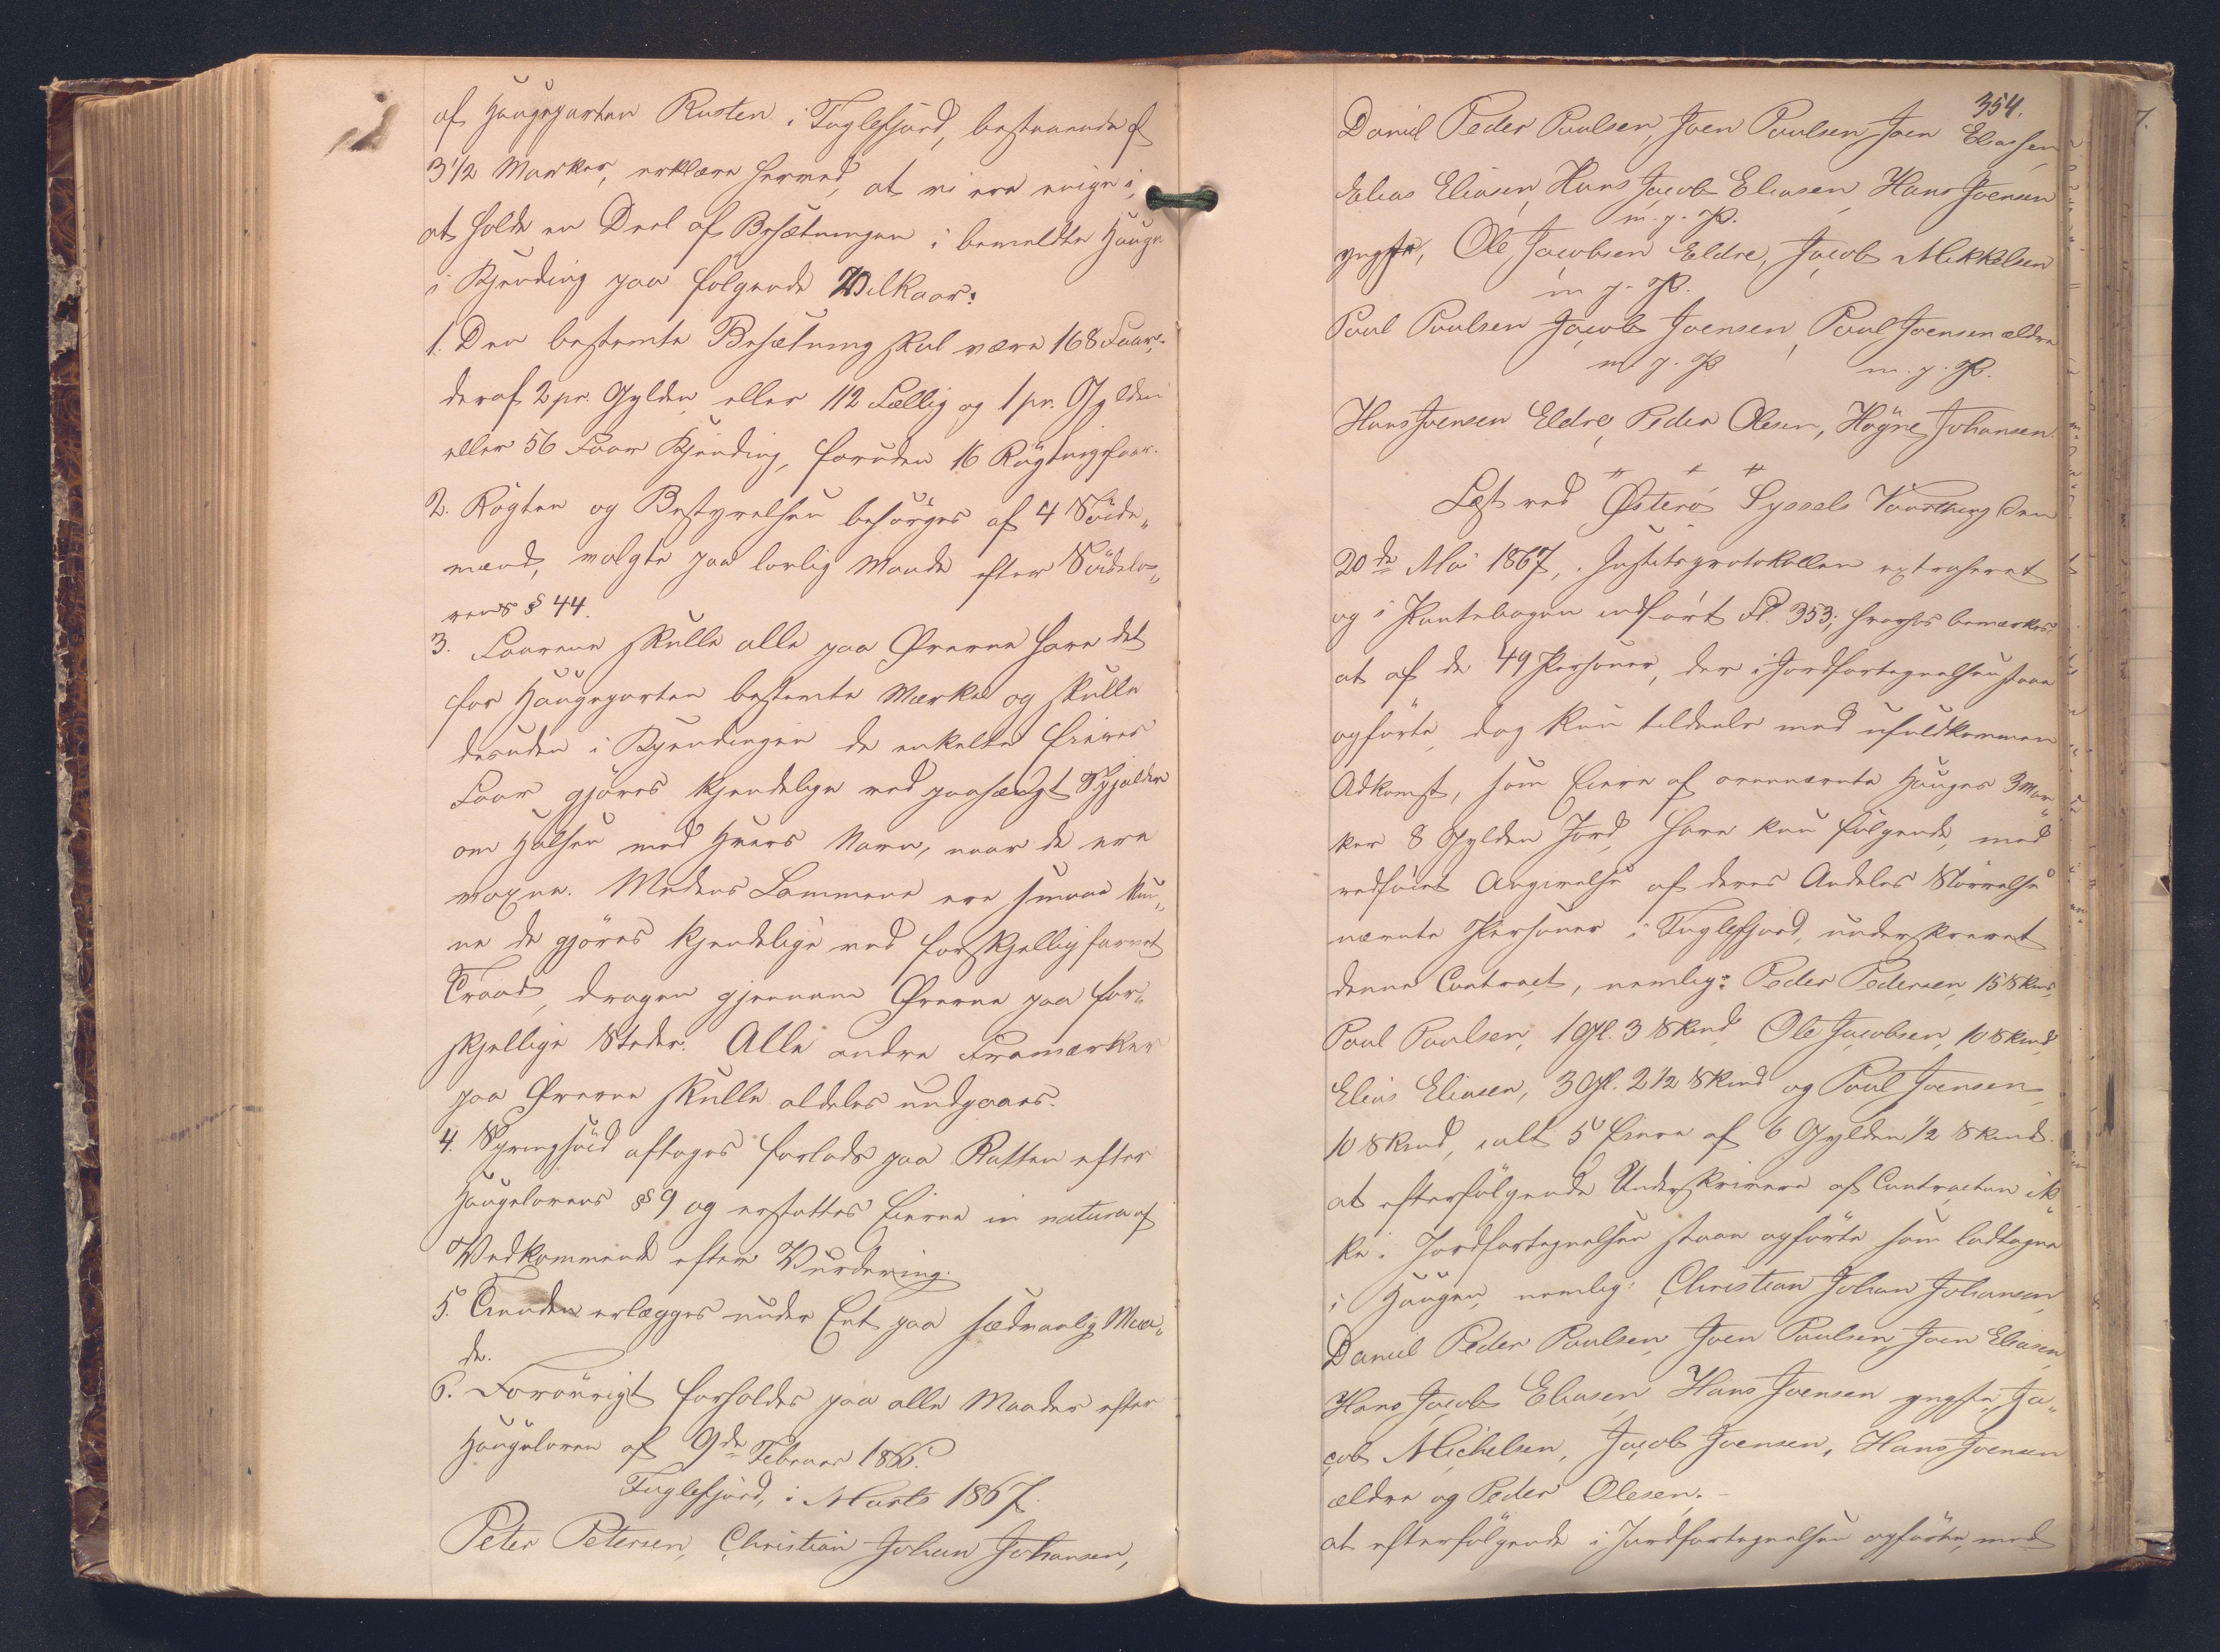 af Haugeparten Rusten i Fuglefjord, bestaaende af
3 1/2 Marker, erklære herved, at vi ere enige i,
at holde en Deel af Besætningen i bemeldte Hauge
i Kjending paa følgende Vilkaar:
1. Den bestemte Besætning skal være 168 Faar,
deraf 2 pr. Gylden eller 112 Fællig og 1 pr. Gylden
eller 56 Faar Kjending, foruden 16 Røgtningsfaar.
2. Røgten og Bestyrelsen besørges af 4 Søide„
mænd, valgte paa lovlig Maade efter Søidelo„
vens § 44.
3. Faarene skulle alle paa Ørerne have det
for Haugeparten bestemte Mærke og skulle
desuden i Kjendingen de enkelte Eieres
Faar gjøres kjendelige ved paahængt Spjælder
om Halsen med Hvers Navn, naar de ere
voxne. Medens Lammene ere smaae kun„
ne de gjøres kjendelige ved forskjellig farvet
Traad, dragen gjennem Ørerne paa for„
skjellige Steder. Alle andre Framærker
paa Ørerne skulle aldeles undgaaes.
4. Springsøid aftages forlods paa Retten efter
Haugelovens § 9 og erstattes Eierne in natura af
Vedkommende efter Vurdering.
5. Tienden erlægges under Eet paa sædvanlig Maa„
de.
6. Forøvrigt forholdes paa alle Maader efter
Haugeloven af 9de Februar 1866.
Fuglefjord, i Marts 1867.
Peter Petersen, Christian Johan Johansen,
354.
Daniel Peder Poulsen, Joen Poulsen, Joen Eliassen,
Elias Eliasen, Hans Jacob Eliasen, Hans Joensen
m. g. P.
yngste, Ole Jacobsen Eldre, Jacob Mikkelsen
m. g. P.
Poul Poulsen Jacob Joensen, Poul Joensen ældre
m. g. P. m. g. P.
Hans Joensen Eldre, Peder Olesen, Høgne Johansen.
Læst ved Østerø Syssels Vaarthing den
20de Mai 1867, i Justitsprotokollen extraheret
og i Pantebogen indført Fl. 353; hvorhos bemærkes:
at af de 49 Personer, der i Jordfortegnelsen staae
opførte, dog kun tildeels med ufuldkommen
Adkomst, som Eiere af ovennævnte Hauges 3 Mar„
ker 8 Gylden Jord, have kun følgende, med
vedføiet Angivelse af deres Andeles Størrelse
nævnte Personer i Fuglefjord, underskrevet
denne Contract, nemlig: Peder Pedersen, 15 Skind,
Poul Poulsen, 1 Gl. 3 Skind, Ole Jacobsen, 10 Skind,
Elias Eliasen, 3 Gl. 2 1/2 Skind og Poul Joensen,
10 Skind, ialt 5 Eiere af 6 Gylden 1/2 Skind.
at efterfølgende Underskrivere af Contracten ik„
ke i Jordfortegnelsen staae opførte som lodtagne
i Haugen, nemlig: Christian Johan Johansen,
Daniel Peder Poulsen, Joen Poulsen, Joen Eliasen,
Hans Jacob Eliasen, Hans Joensen yngste, Ja„
cob Michelsen, Jacob Joensen, Hans Joensen
ældre og Peder Olesen.
at efterfølgende i Jordfortegnelsen opførte, med